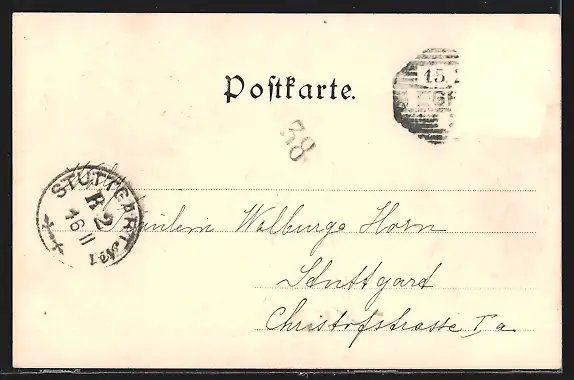 Postkarte.
15.
38
STUTTGART No. 1
R 2
16 11
Fräulein Walburga Horn
Stuttgart
Christofstrasse 1 a